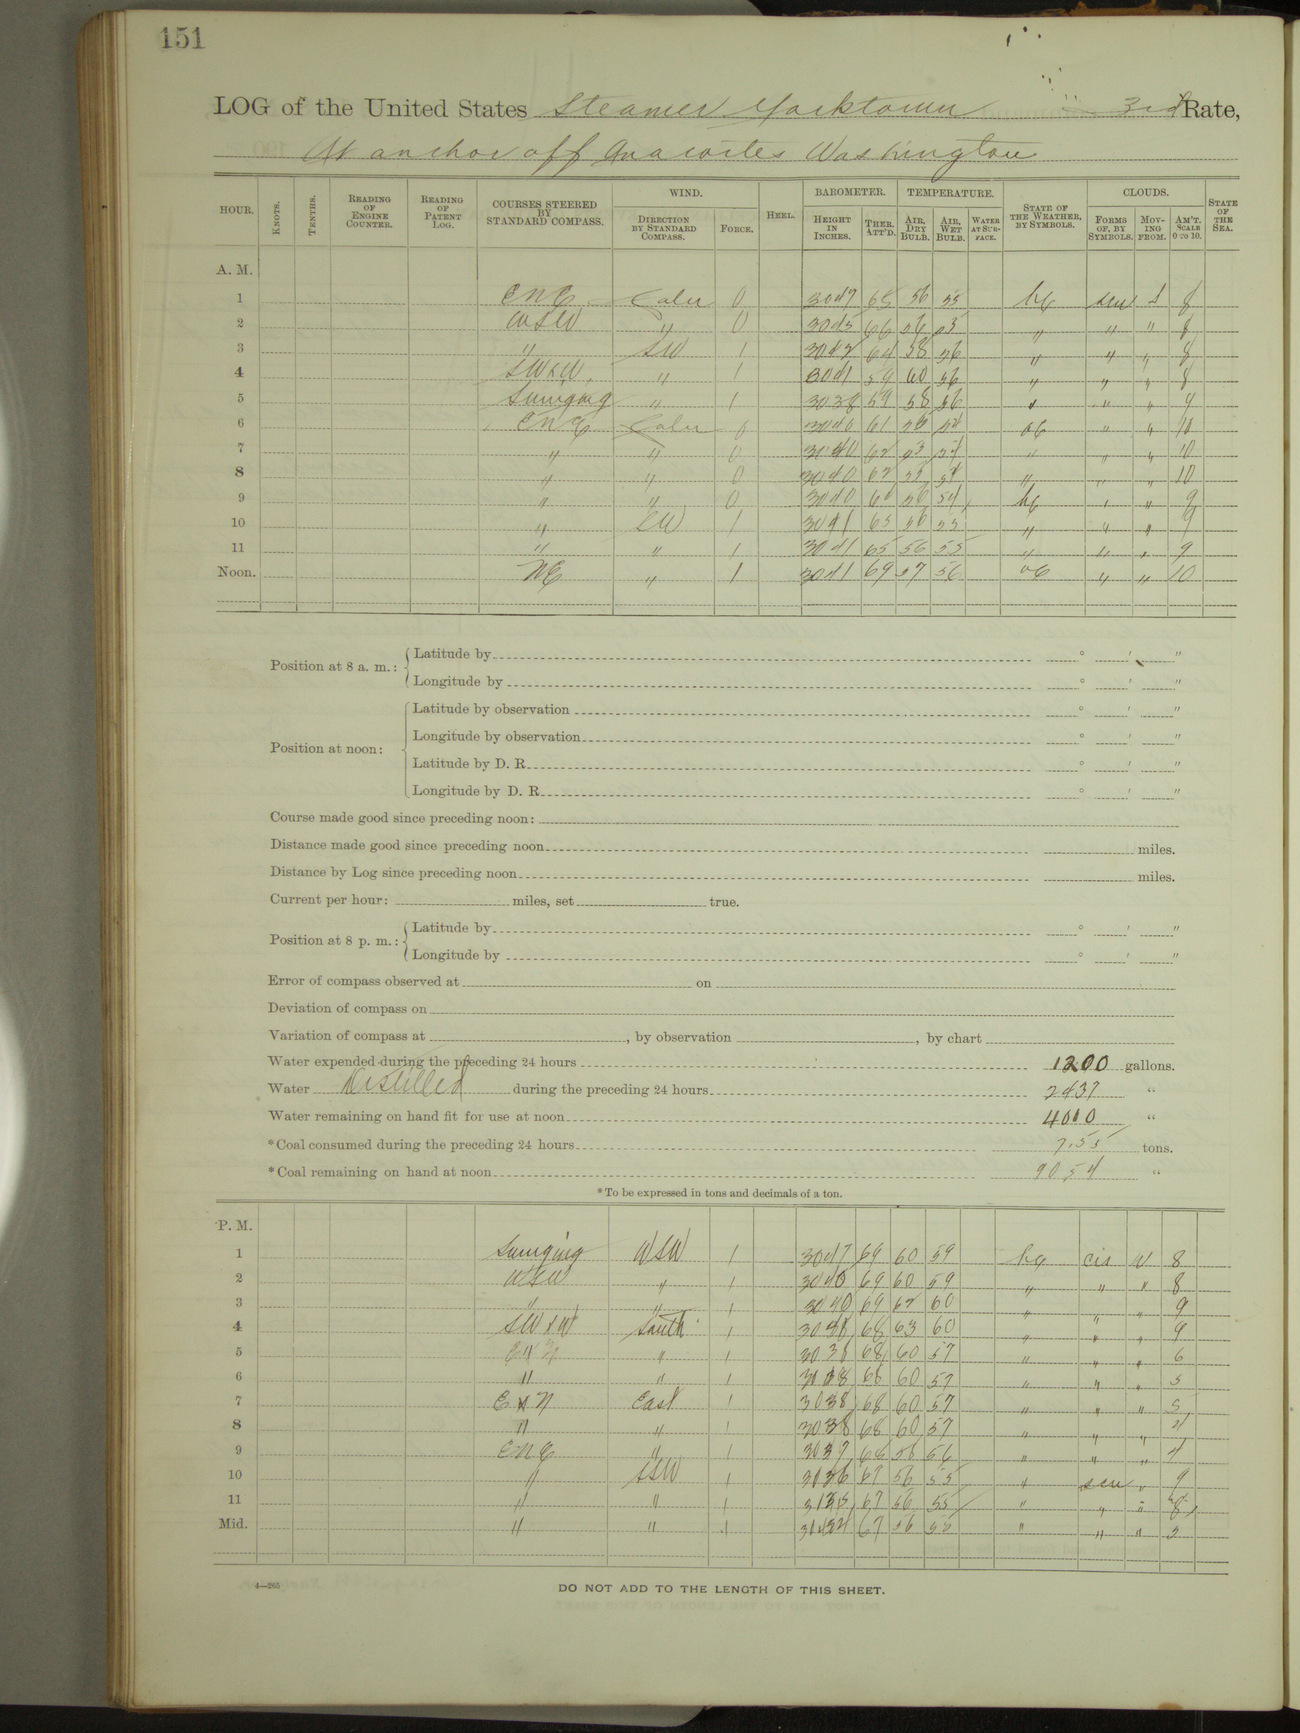 151
LOG of the United States Steamer Yorktown 3rd Rate,
At anchor off Anacortes Washington
HOUR. KNOTS. TENTHS. READING OF ENGINE COUNTER. READING OF PATENT LOG. COURSES STEERED BY STANDARD COMPASS. WIND. DIRECTION BY STANDARD COMPASS. FORCE. HEEL. BAROMETER. HEIGHT IN INCHES. THER. ATT'D. TEMPERATURE. AIR, DRY BULB. AIR, WET BULB. WATER AT SURFACE. STATE OF THE WEATHER, BY SYMBOLS. CLOUDS. FORMS OF, BY SYMBOLS. MOVING FROM. AM'T. SCALE 0 TO 10. STATE OF THE SEA.
A. M.
1 ENE Calm 0 56 55 8
2 WSW " 0 " " " 8
3 " SW 1 58 56 " " " 8
4 SWxW " 1 3041 59 60 56 " " " 8
5 Swinging " 1 3038 59 58 56 " " "
6 ENE Calm 0 3040 61 " " 10
7 " " 0 3040 62 " " " 10
8 " " 0 3040 62 54 " " " 10
9 " " 0 3040 54 " " 9
10 " SW 1 65 56 55 " " " 9
11 " " 1 3041 65 56 55 " " " 9
Noon. NE " 1 3041 69 57 56 " " 10
Position at 8 a. m.: Latitude by ° ' "
Longitude by ° ' "
Position at noon: Latitude by observation ° ' "
Longitude by observation ° ' "
Latitude by D. R. ° ' "
Longitude by D. R. ° ' "
Course made good since preceding noon:
Distance made good since preceding noon miles.
Distance by Log since preceding noon miles.
Current per hour: miles, set true.
Position at 8 p. m.: Latitude by ° ' "
Longitude by ° ' "
Error of compass observed at on
Deviation of compass on
Variation of compass at , by observation , by chart
Water expended during the preceding 24 hours 1200 gallons.
Water Distilled during the preceding 24 hours 2437 "
Water remaining on hand fit for use at noon 4000 "
*Coal consumed during the preceding 24 hours 7.55 tons.
*Coal remaining on hand at noon 90 54 "
*To be expressed in tons and decimals of a ton.
P. M.
1 Swinging WSW 1 69 60 59 W 8
2 WSW " 1 3040 69 60 59 " " " 8
3 " " 1 3040 69 62 60 " " " 9
4 SWxW South 1 68 63 60 " " " 9
5 " 1 3038 68 60 57 " " " 6
6 " " 1 3038 68 60 57 " " " 5
7 ExN East 1 3038 68 60 57 " " " 5
8 " " 1 3038 68 60 57 " " " 4
9 ENE " 1 3037 68 56 56 " " " 4
10 " SSW 1 3036 67 56 55 " " 9
11 " " 1 67 56 55 " " "
Mid. " " 1 67 56 55 " " "
4—265
DO NOT ADD TO THE LENGTH OF THIS SHEET.